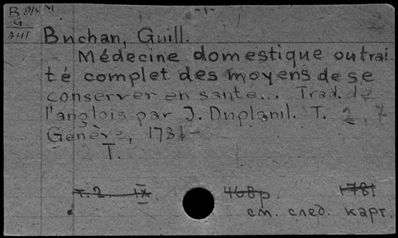 B
G
Buchan, Guill.
Médecine domestique ou trai-
té complet des moyens de se
conserver en santé... Trad. de
l'anglois par J. Duplanil. T. 2, 7
Genève, 1781-
T.
т. 2 IX 468p. 1781
см. след. карт.